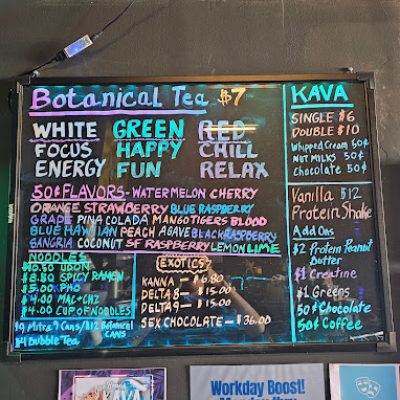 Botanical Tea $7
WHITE GREEN RED
FOCUS HAPPY CHILL
ENERGY FUN RELAX
50¢ FLAVORS - WATERMELON CHERRY
ORANGE STRAWBERRY BLUE RASPBERRY
GRAPE PINA COLADA MANGO TIGERS BLOOD
BLUE HAWAIIAN PEACH AGAVE BLACK RASPBERRY
SANGRIA COCONUT SF RASPBERRY LEMON LIME
NOODLES
$10.50 UDON
$8.80 SPICY RAMEN
$5.00 PHO
$4.00 MAC+CHZ
$4.00 CUP OF NOODLES
$9 Mitra 9 Cans/$12 Botanical
CANS
$4 Bubble Tea
EXOTICS
KANNA — $6.80
DELTA 8 — $15.00
DELTA 9 — $15.00
SEX CHOCOLATE — $36.00
KAVA
SINGLE $6
DOUBLE $10
Whipped Cream 50¢
NUT MILKS 50¢
Chocolate 50¢
Vanilla $12
Protein Shake
Add Ons
$2 Protein Peanut
Butter
$1 Creatine
$1 Greens
50¢ Chocolate
50¢ Coffee
KAVA
Workday Boost!